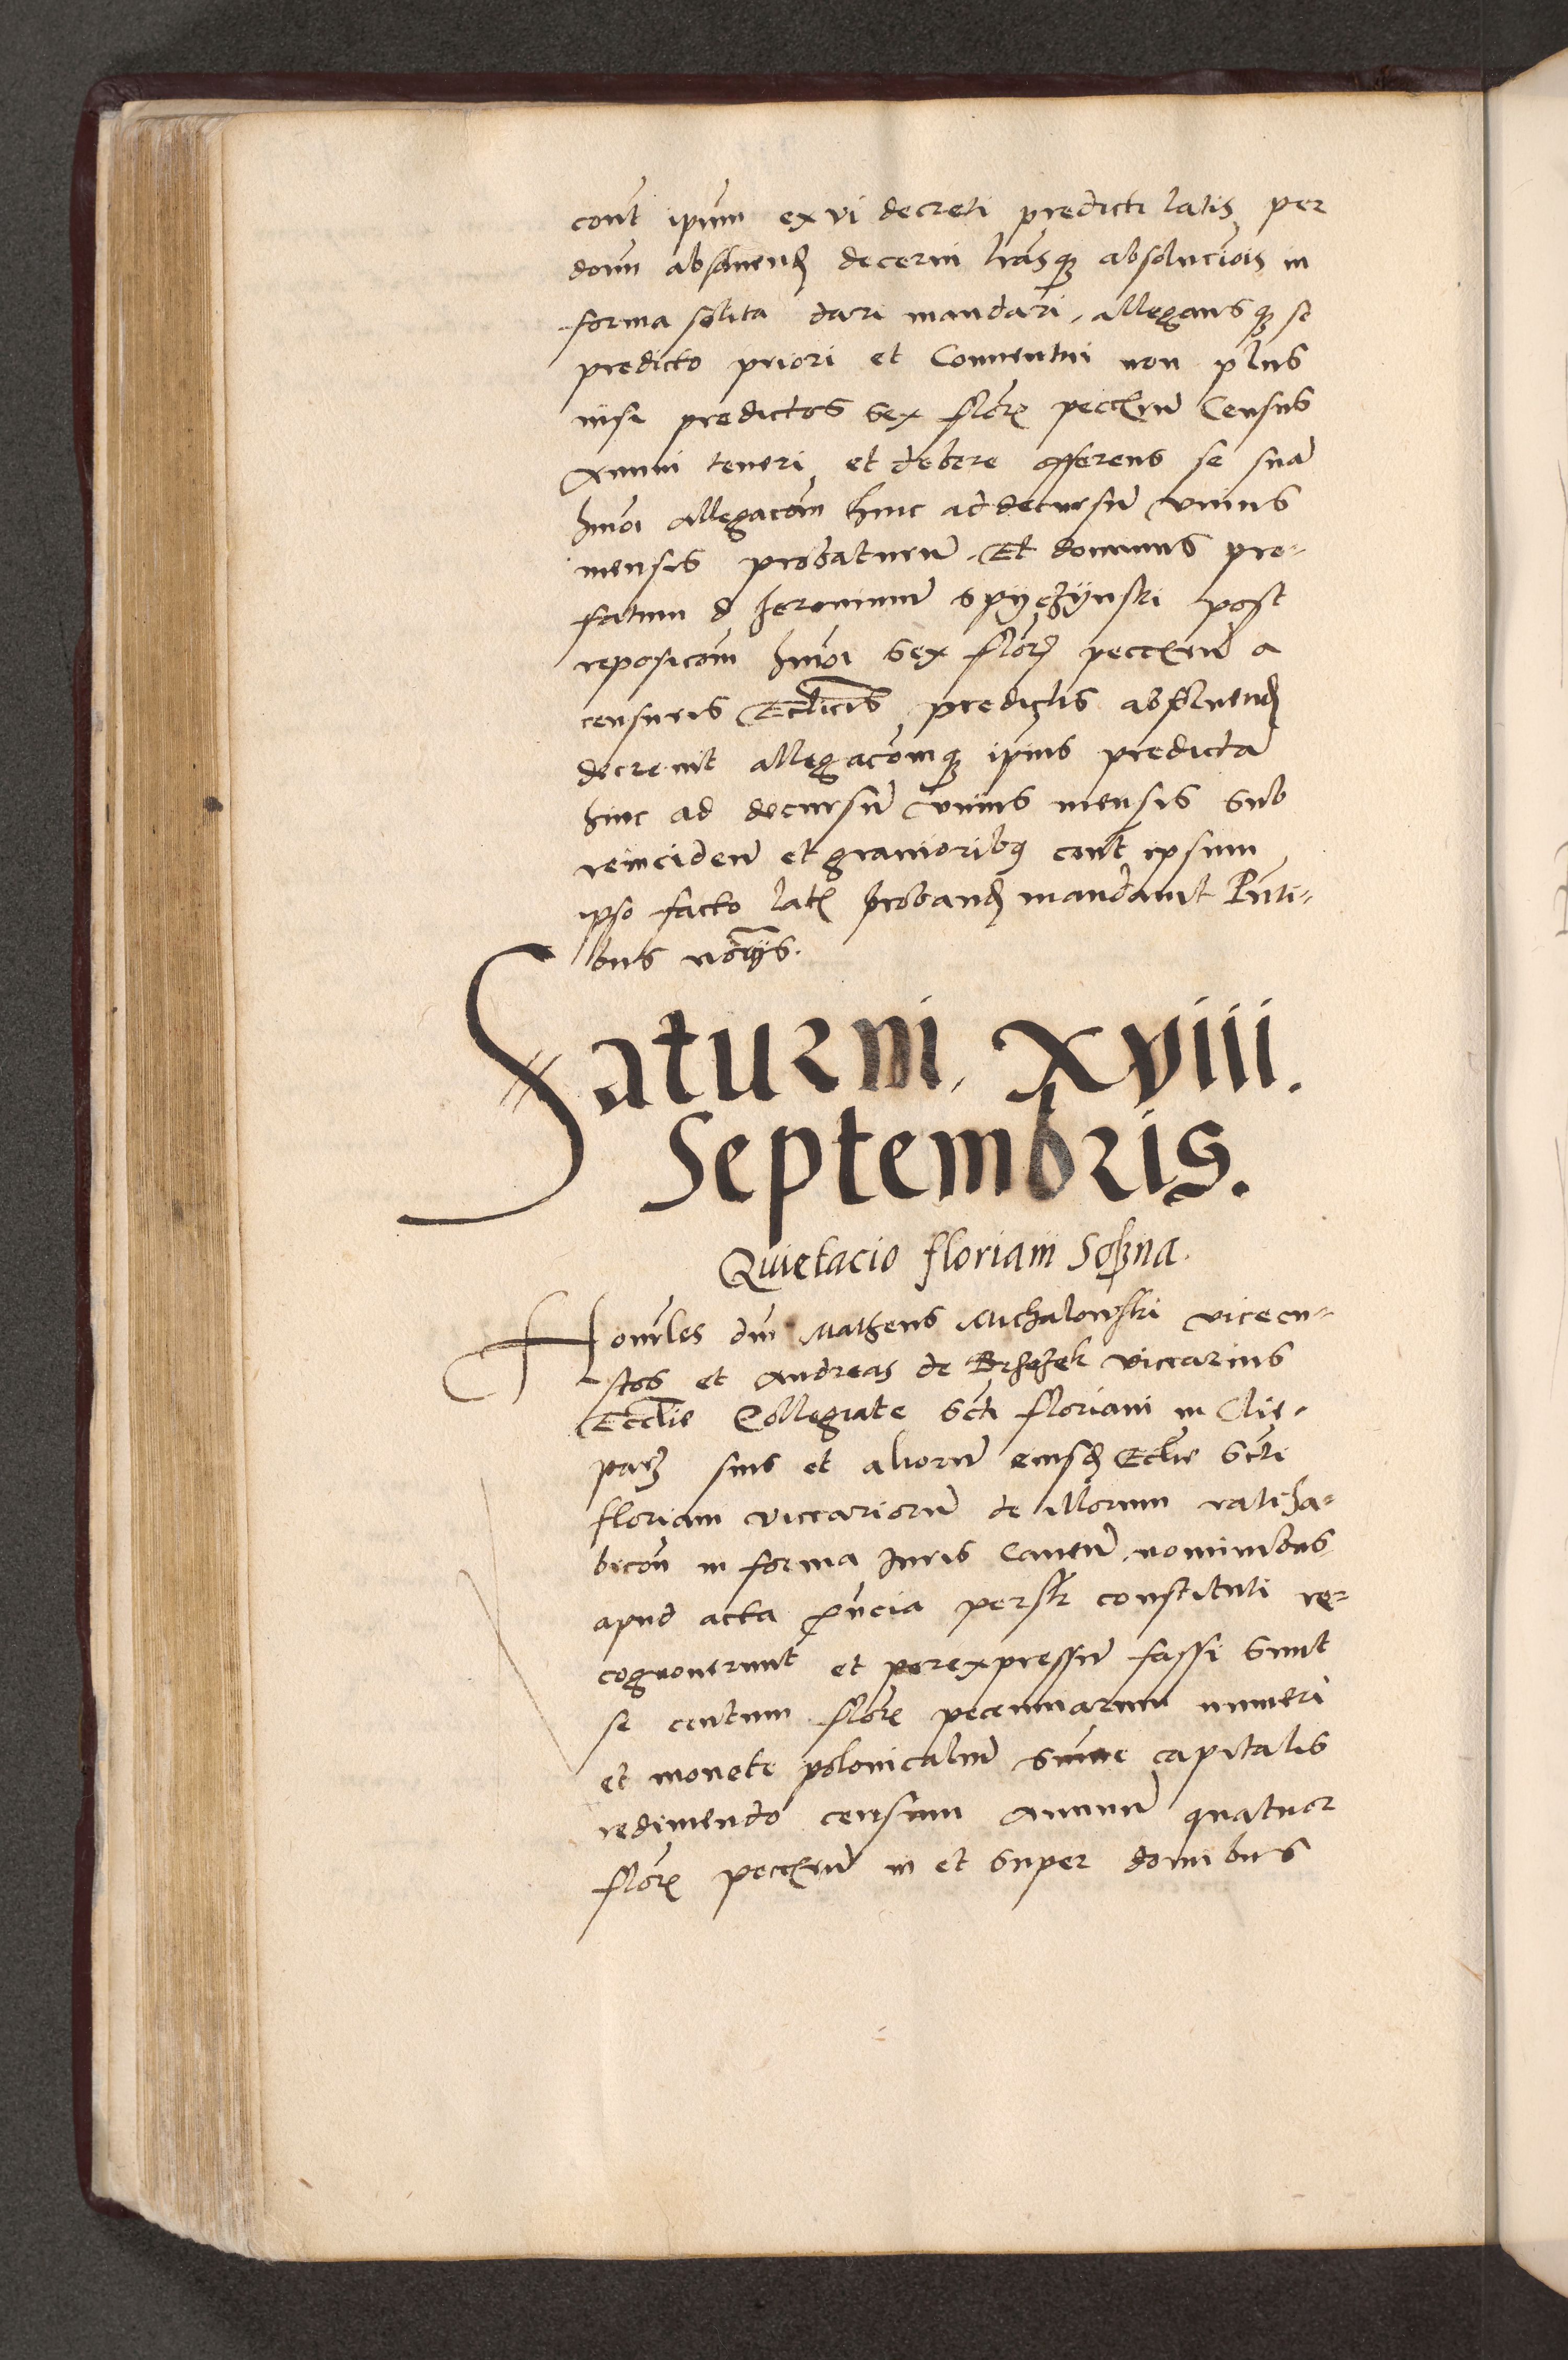 cont ipum ex vi decreti predicti latis per
dnum absoluend decerni lrasq absolucionis in
forma solita dari mandari, allegansq se
predicto priori et Conuentui non plus
nisi predictos sex floren peccrum Census
Annui teneri et debere offerens se sua
hmoi allegacom hinc ad decursu vnius
mensis probaturu. Et dominus pre-
fatum d Jeronimu Spyczynski post
reposicom hmoi sex floren peccrum a
censuris Ecclicis predictis absoluend
decreuit allegacomq ipius predicta
hinc ad decursu vnius mensis sub
reinciden et grauioribus cont ipsum
ipso facto lat proband mandauit Pnti-
bus notarijs.
Saturni. xviii.
Septembris.
Quietacio floriani Sopna.
Honorles dni Matheus Michalowski vicecu-
stos et Andreas de Brzezek viccarius
Ecclie Collegiate Scti floriani in Cle-
parz suis et aliorum eiusd Ecclie Scti
floriani viccariorum de illorum ratiha-
bicon in forma Juris Cauen nominibus
apud acta pncia personalr constituti re-
cognouerunt et per expressum fassi sunt
se centum floren pecuniarum numeri
et monete polonicalium summe capitalis
redimendo censum annuum quatuor
floren peccrum in et super domibus